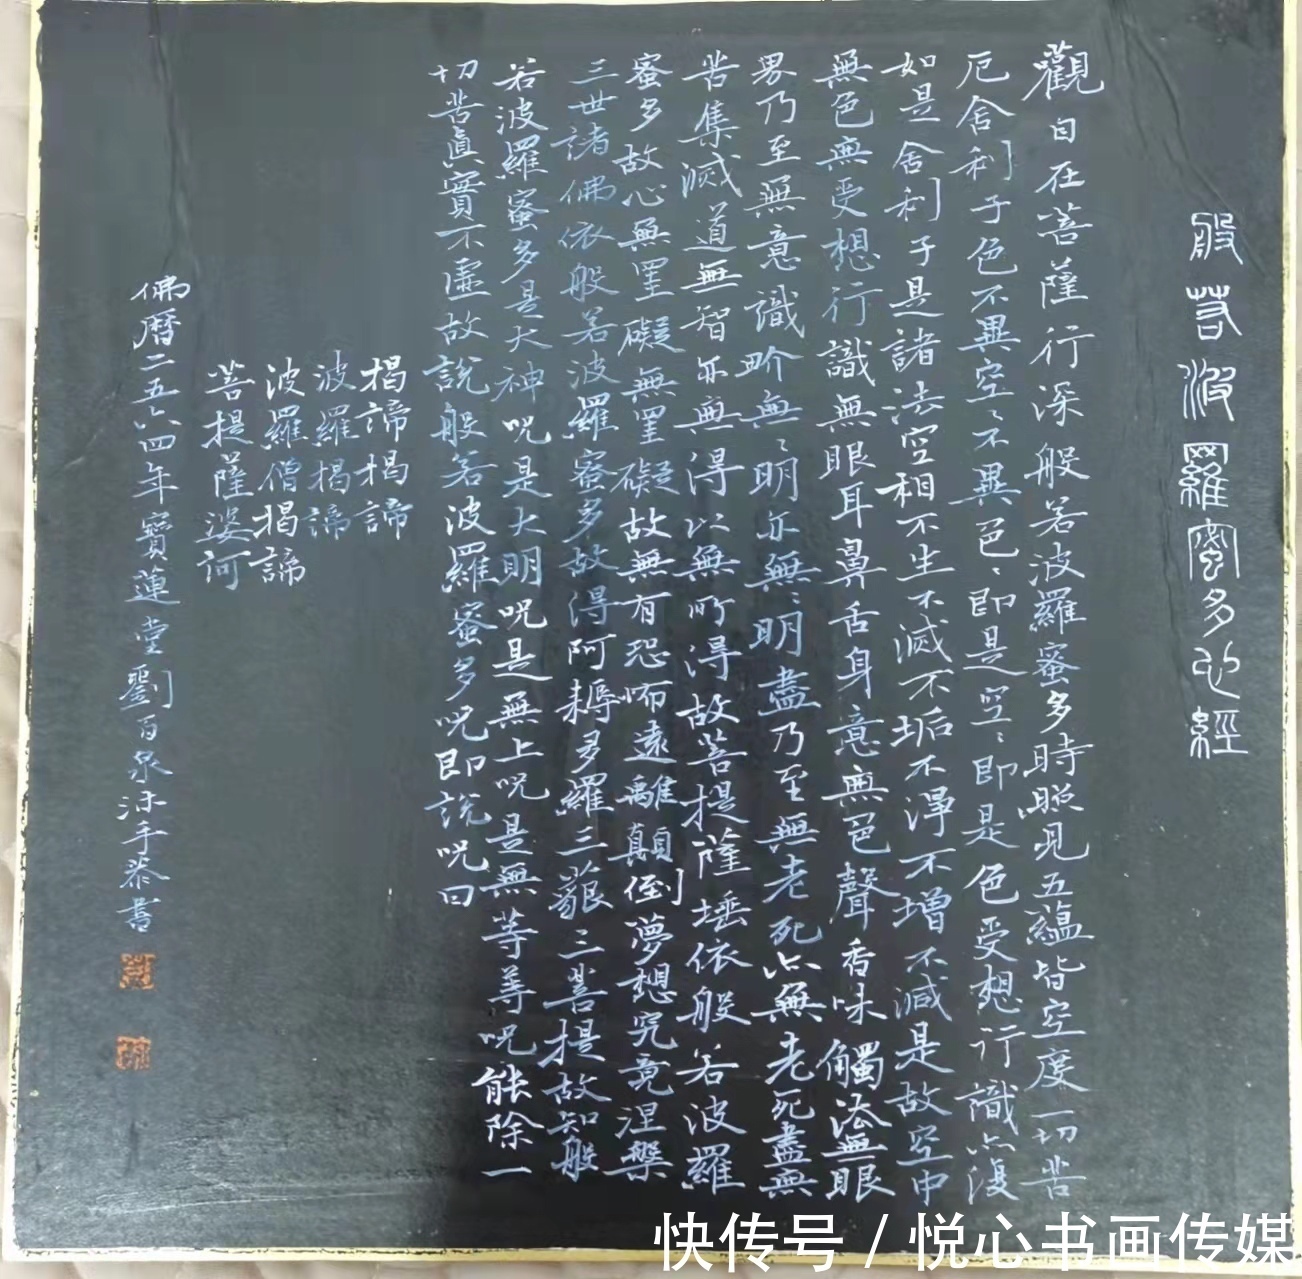 般若波羅蜜多心經
觀自在菩薩行深般若波羅蜜多時照見五蘊皆空度一切苦
厄舍利子色不異空〻不異色〻即是空〻即是色受想行識亦復
如是舍利子是諸法空相不生不滅不垢不淨不增不減是故空中
無色無受想行識無眼耳鼻舌身意無色聲香味觸法無眼
界乃至無意識界無〻明亦無〻明盡乃至無老死亦無老死盡無
苦集滅道無智亦無得以無所得故菩提薩埵依般若波羅
蜜多故心無罣礙無罣礙故無有恐怖遠離顛倒夢想究竟涅槃
三世諸佛依般若波羅蜜多故得阿耨多羅三藐三菩提故知般
若波羅蜜多是大神呪是大明呪是無上呪是無等等呪能除一
切苦真實不虛故說般若波羅蜜多呪即說呪曰
揭諦揭諦
波羅揭諦
波羅僧揭諦
菩提薩婆訶
佛曆二五六四年寶蓮堂劉百泉沐手恭書
快传号 / 悦心书画传媒